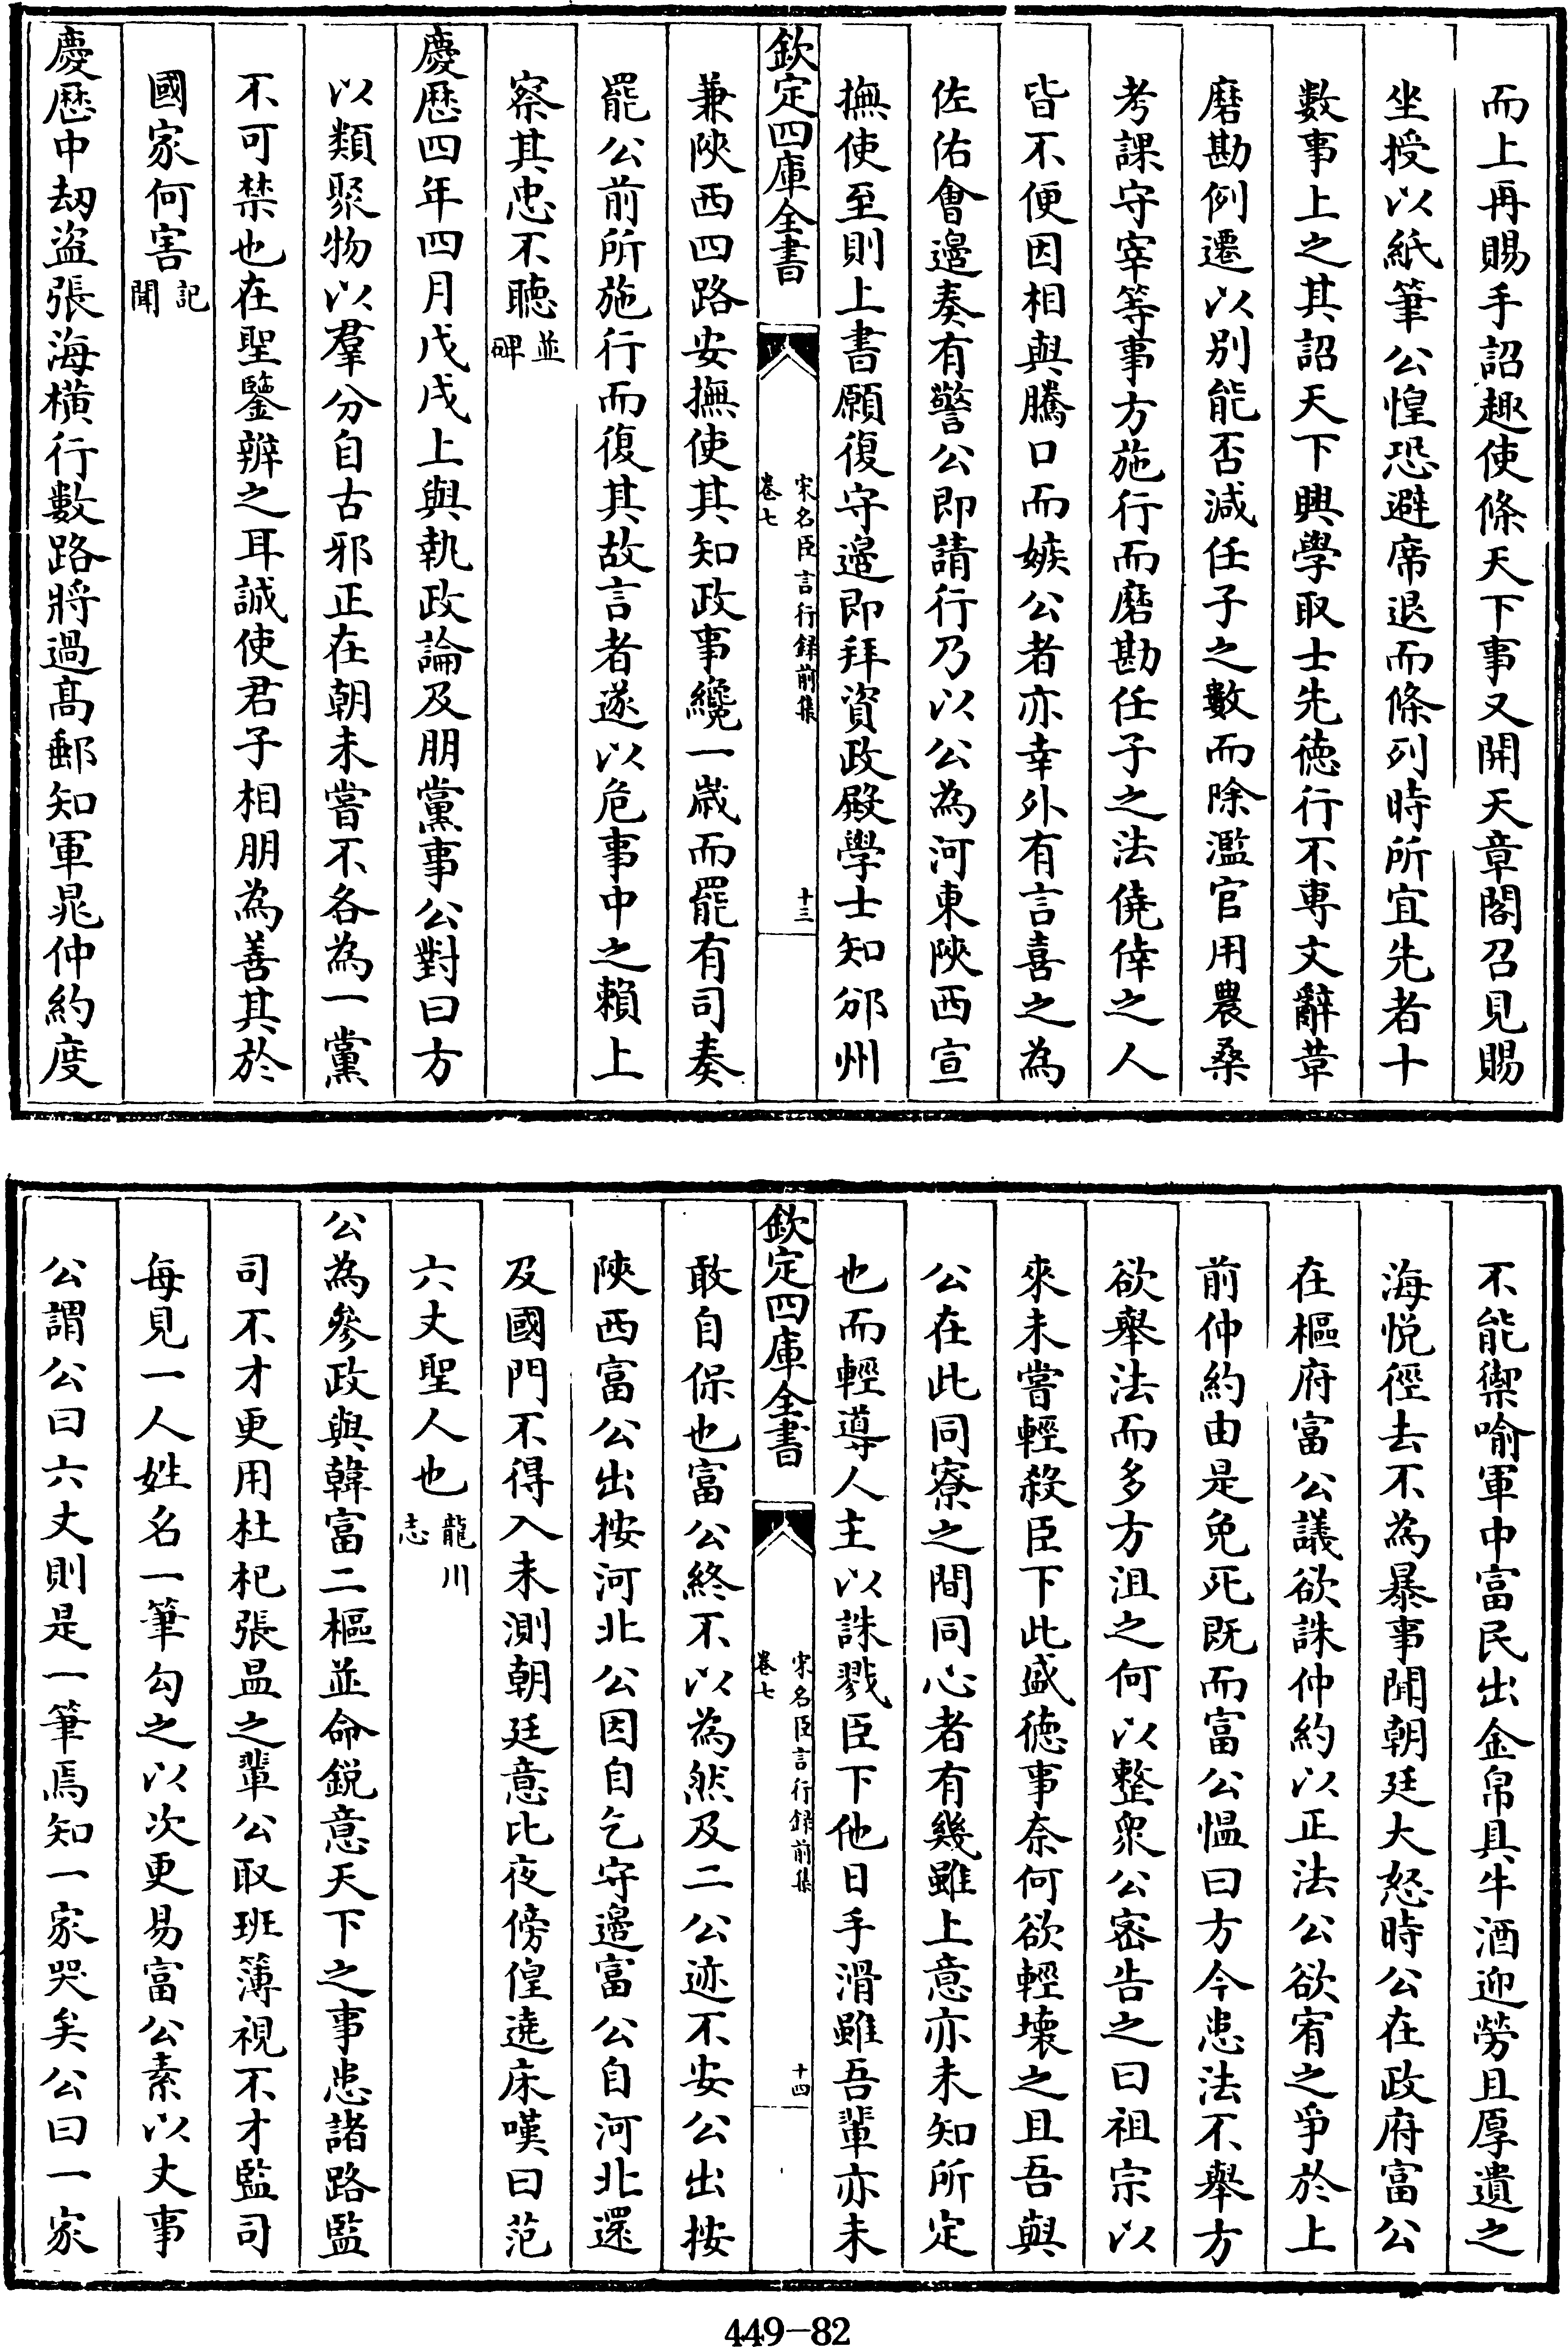 而上再賜手詔趣使條天下事又開天章閣召見賜
坐授以紙筆公惶恐避席退而條列時所宜先者十
數事上之其詔天下興學取士先徳行不専文辭革
磨勘例遷以别能否減任子之數而除濫官用農桑
考課守宰等事方施行而磨勘任子之法僥倖之人
皆不便因相與騰口而嫉公者亦幸外有言喜之為
佐佑會邉奏有警公即請行乃以公為河東陜西宣
撫使至則上書願復守邉即拜資政殿學士知邠州
欽定四庫全書
宋名臣言行録前集
卷七
十三
兼陜西四路安撫使其知政事纔一歳而罷有司奏
罷公前所施行而復其故言者遂以危事中之賴上
察其忠不聽並
碑
慶厯四年四月戊戌上與執政論及朋黨事公對曰方
以類聚物以羣分自古邪正在朝未嘗不各為一黨
不可禁也在聖鑒辨之耳誠使君子相朋為善其於
國家何害記
聞
慶厯中刼盗張海横行數路將過髙郵知軍晁仲約度
不能禦喻軍中富民出金帛具牛酒迎勞且厚遺之
海悦徑去不為暴事聞朝廷大怒時公在政府富公
在樞府富公議欲誅仲約以正法公欲宥之爭於上
前仲約由是免死既而富公愠曰方今患法不舉方
欲舉法而多方沮之何以整衆公宻告之曰祖宗以
來未嘗輕殺臣下此盛徳事奈何欲輕壊之且吾與
公在此同寮之間同心者有幾雖上意亦未知所定
也而輕導人主以誅戮臣下他日手滑雖吾輩亦未
欽定四庫全書
宋名臣言行録前集
卷七
十四
敢自保也富公終不以為然及二公迹不安公出按
陜西富公出按河北公因自乞守邉富公自河北還
及國門不得入未測朝廷意比夜傍徨遶床嘆曰范
六丈聖人也龍川
志
公為參政與韓富二樞並命鋭意天下之事患諸路監
司不才更用杜杞張昷之輩公取班簿視不才監司
每見一人姓名一筆勾之以次更易富公素以丈事
公謂公曰六丈則是一筆焉知一家哭矣公曰一家
449-82